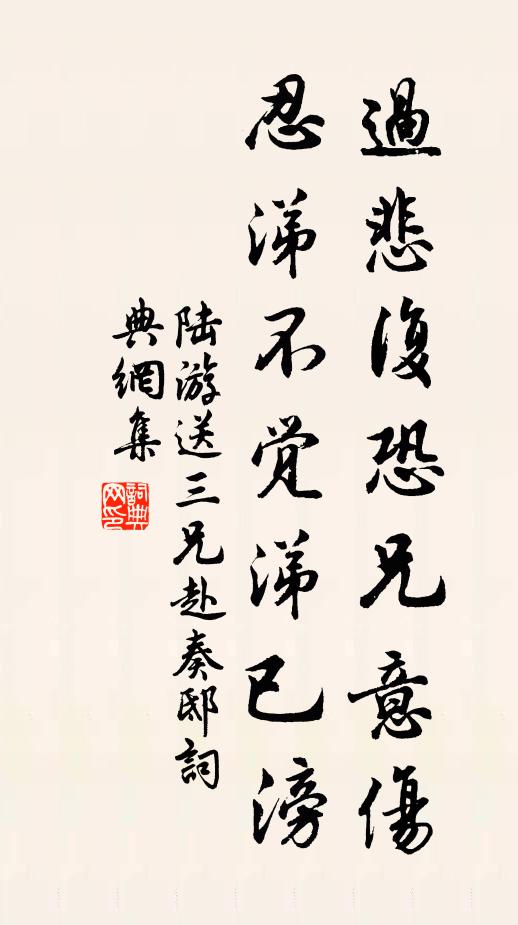 過悲復恐兄意傷
忍涕不覚涕已滂
陆游送三兄赴奏邸詞
典網集
詞典
网印